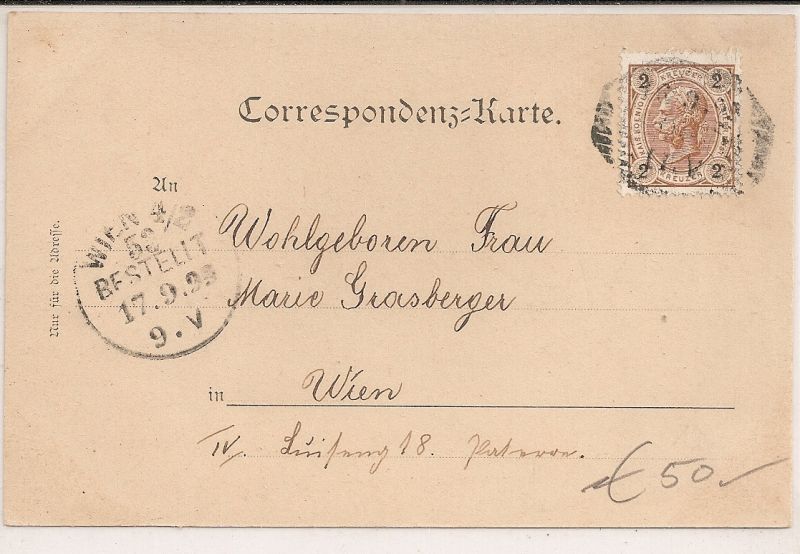 Correspondenz=Karte.
2 KREUZER 2
2 KREUZER 2
An
Wohlgeboren Frau
Marie Grasberger
in Wien
IV. Luiseng 18. Paterre.
€ 50
Nur für die Adresse.
WIEN 4/2
53
BESTELLT
17.9.98
9.V